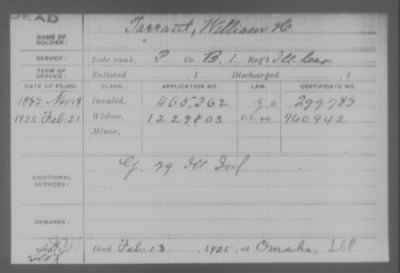 DEAD
NAME OF SOLDIER: Tarrant, William H
SERVICE: Late rank, P Co. B, 1 Reg't Ill Cav
TERM OF SERVICE: Enlisted , 1 Discharged , 1
DATE OF FILING. CLASS. APPLICATION NO. LAW. CERTIFICATE NO.
1882 Nov 8 Invalid, 463,262 G.O 299783
1925 Feb 21 Widow, 1229803 960942
Minor,
ADDITIONAL SERVICES: G. 29 Ill Inf
REMARKS:
Died Feb. 13, 1925, at Omaha, Ill